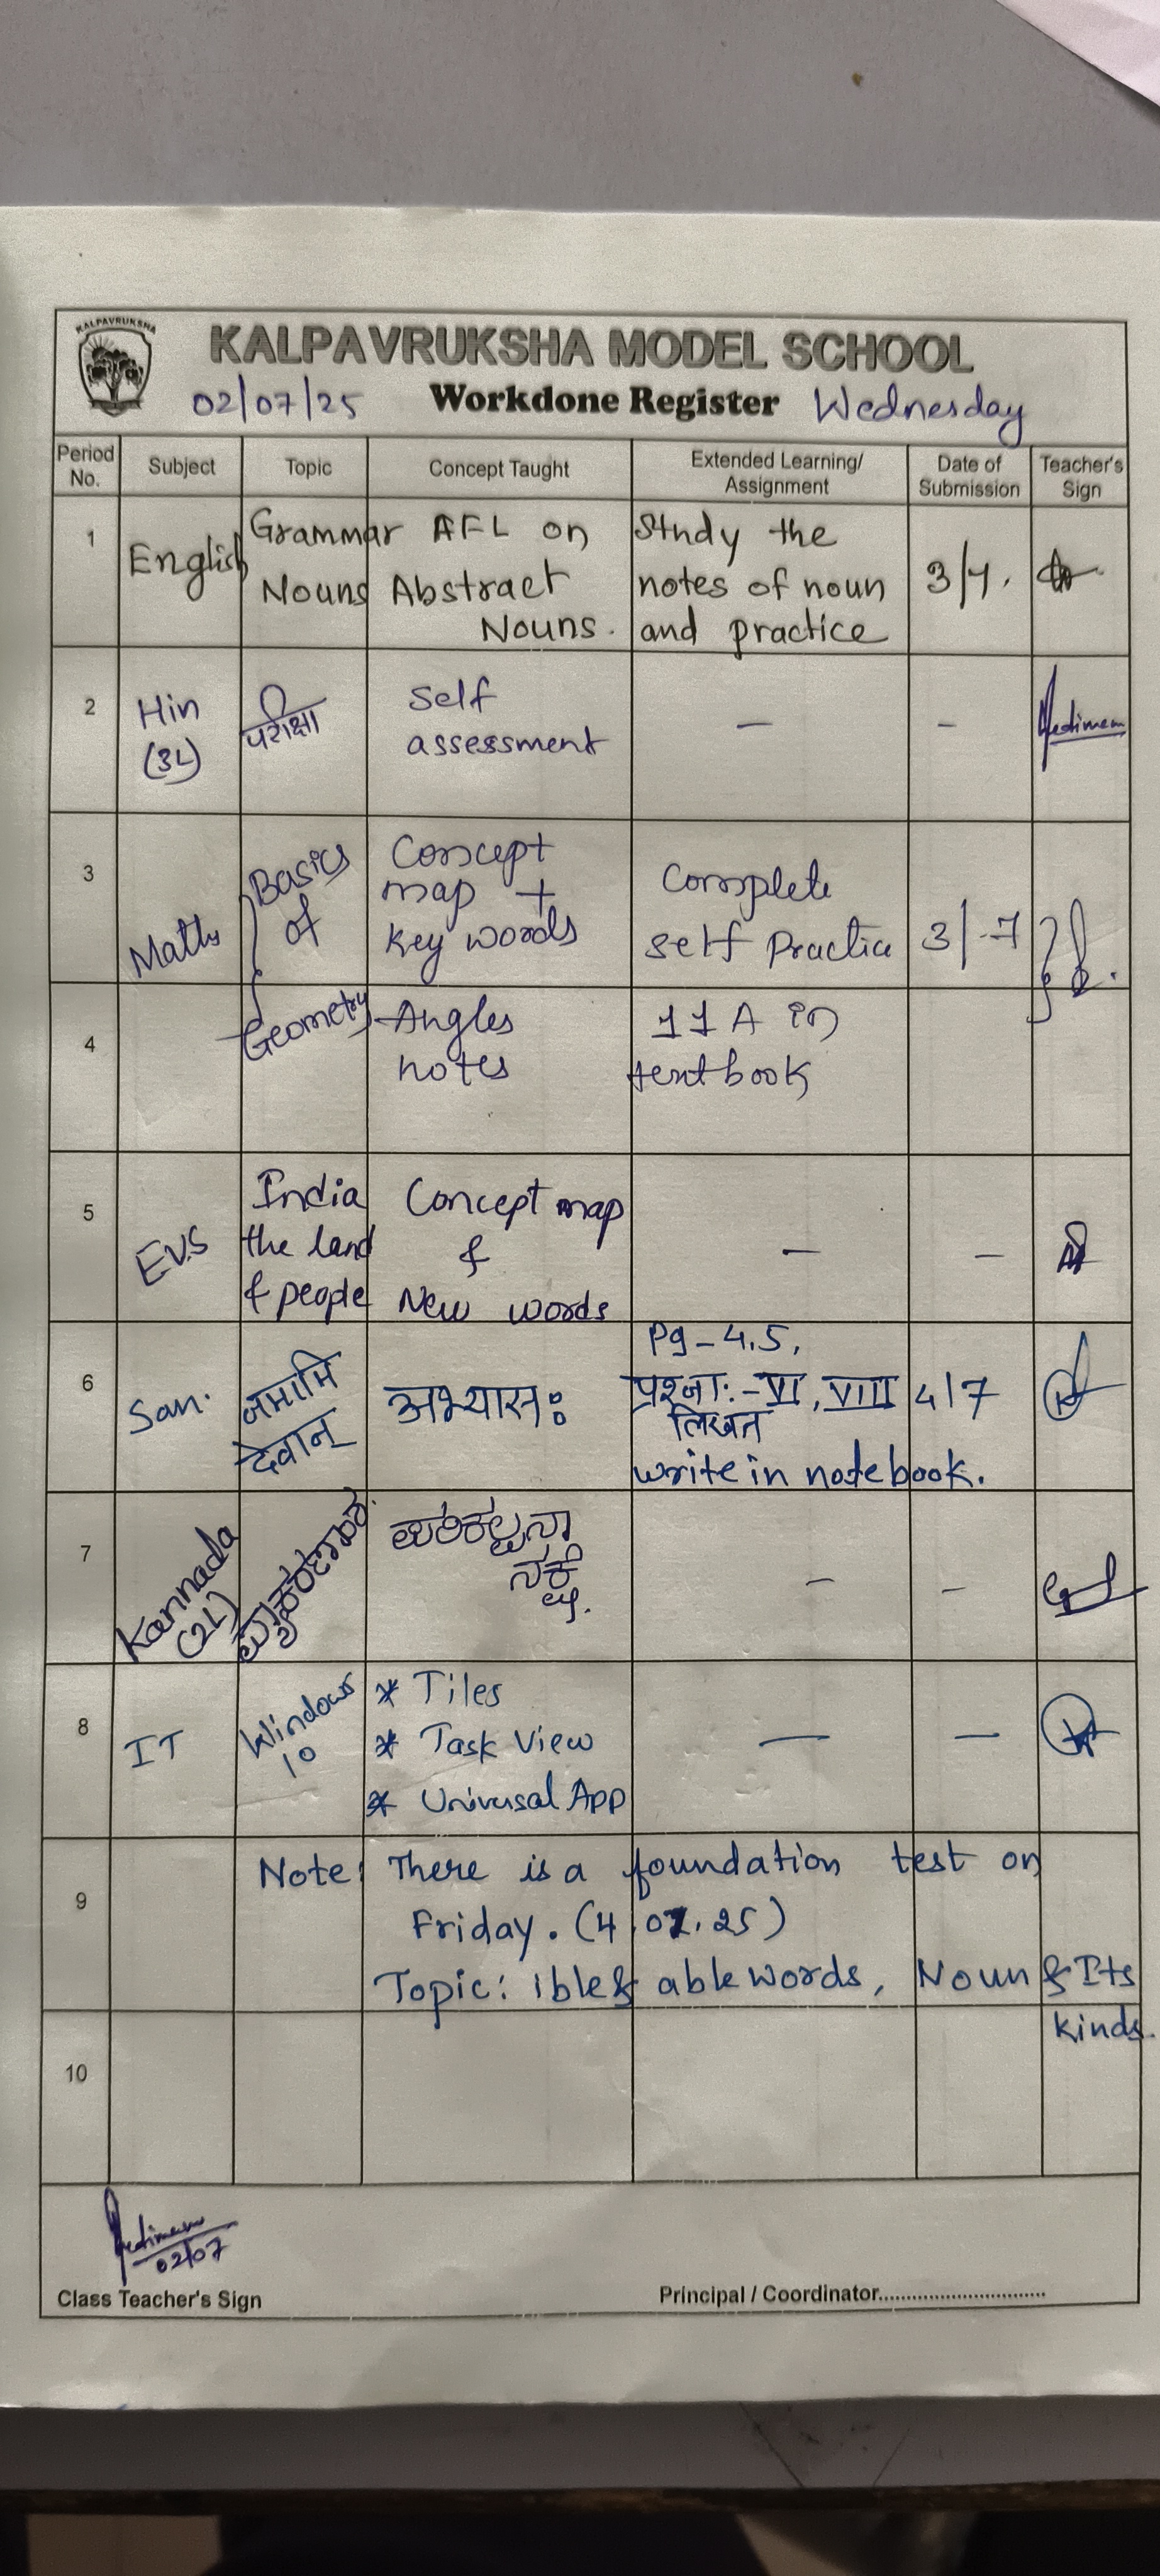 KALPAVRUKSHA
KALPAVRUKSHA MODEL SCHOOL
02/07/25 Workdone Register Wednesday
Period No. Subject Topic Concept Taught Extended Learning/ Assignment Date of Submission Teacher's Sign
1 English Grammar Nouns AFL on Abstract Nouns. Study the notes of noun and practice 3/7.
2 Hin (3L) परीक्षा Self assessment — -
3 Maths Basics of Concept map + Key words Complete self Practice 3/-7
4 Geometry -Angles notes 11 A in textbook
5 EVS India the land & people Concept map & New words — -
6 San. नमामि देवान् अभ्यासः Pg-4,5, प्रश्नाः-VI, VIII लिखत write in notebook. 4/7
7 Kannada (2L) ಪರಿಕಲ್ಪನಾ ನಕ್ಷೆ. - -
8 IT Windows 10 * Tiles * Task View * Universal App — —
9 Note: There is a foundation test on
Friday. (4.07.25)
Topic: ible & able words, Noun & Its
kinds.
10
02/07
Class Teacher's Sign Principal / Coordinator..............................